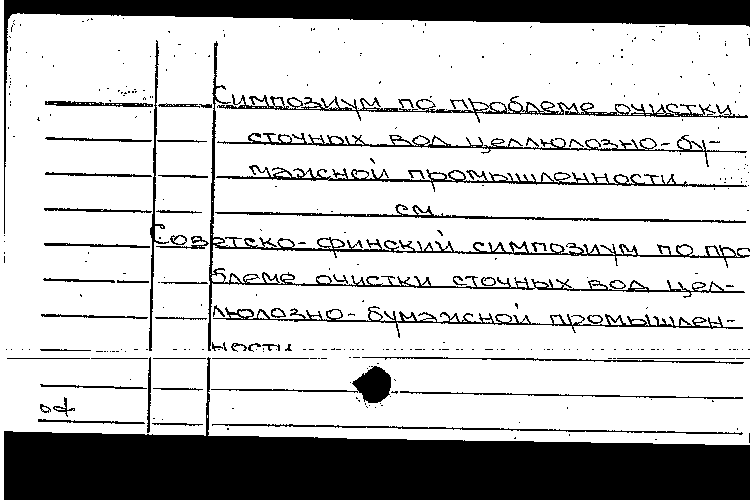 Симпозиум по проблеме очистки
сточных вод целлюлозно-бу-
мажной промышленности.
см.
Советско-финский симпозиум по про
блеме очистки сточных вод цел-
люлозно-бумажной промышлен-
ности
оф